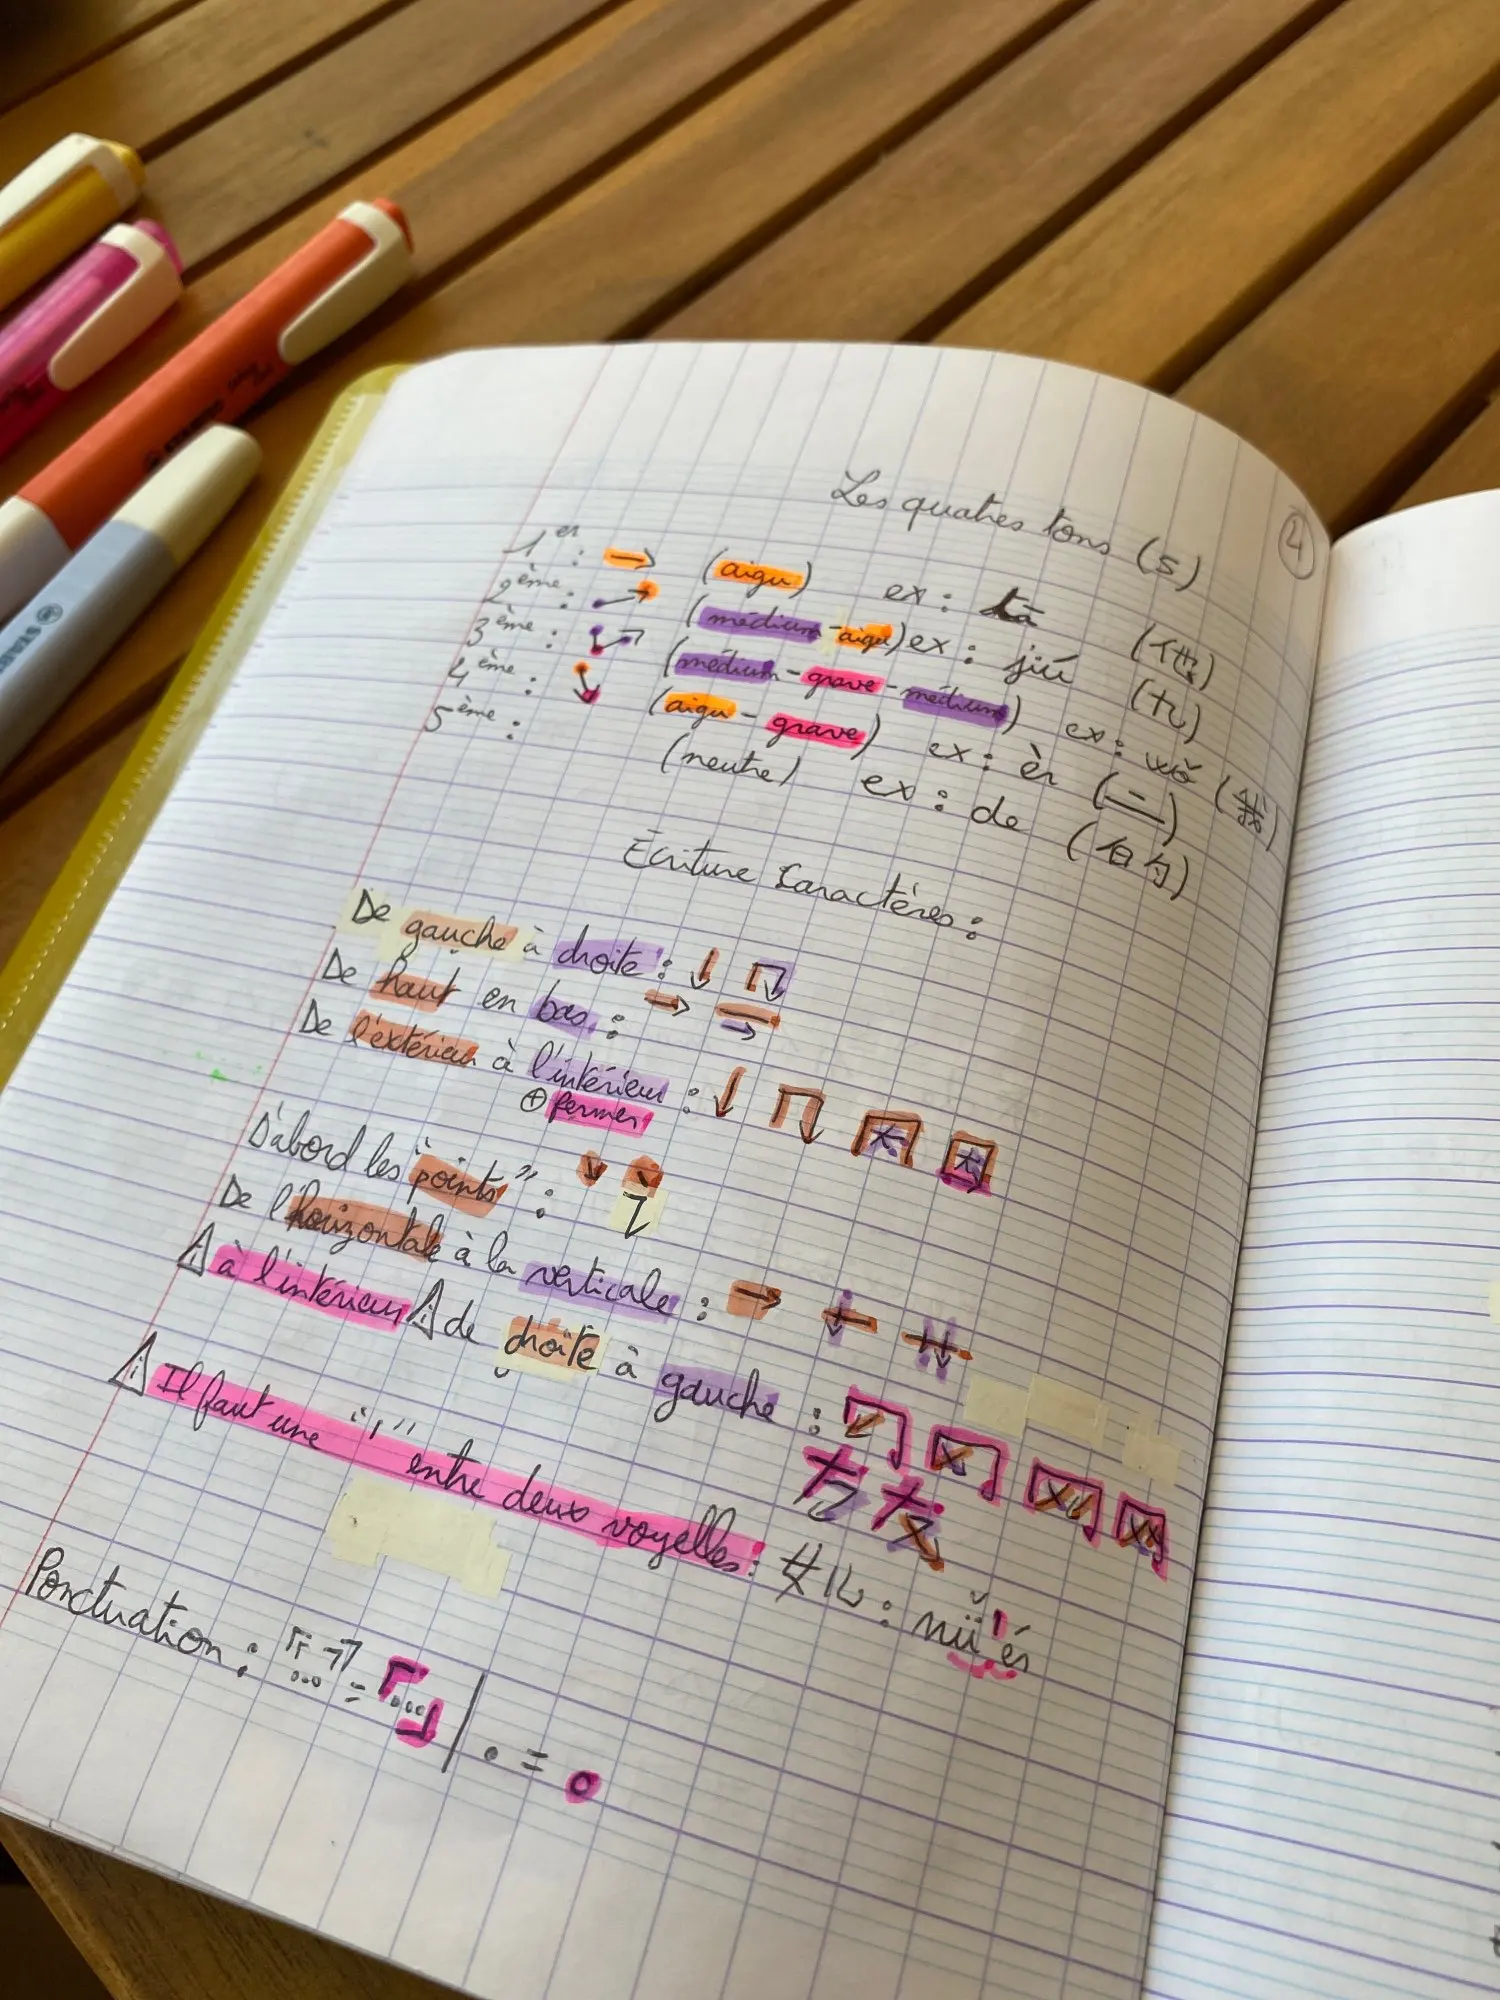 4
Les quatres tons (5)
1er : → (aigu) ex : tā (他)
2ème : (médium-aigu) ex : jiú (九)
3ème : (médium-grave-médium) ex : wǒ (我)
4ème : (aigu-grave) ex : èr (二)
5ème : (neutre) ex : de (白勺)
Écriture Caractères :
De gauche à droite :
De haut en bas :
De l'extérieur à l'intérieur :
⊕ fermer
D'abord les "points" :
De l'horizontale à la verticale :
⚠ à l'intérieur ⚠ de droite à gauche :
⚠ Il faut une "'" entre deux voyelles : 女儿 : nǚ'ér
Ponctuation : " ... " = 「...」 | . = 。
STABILO